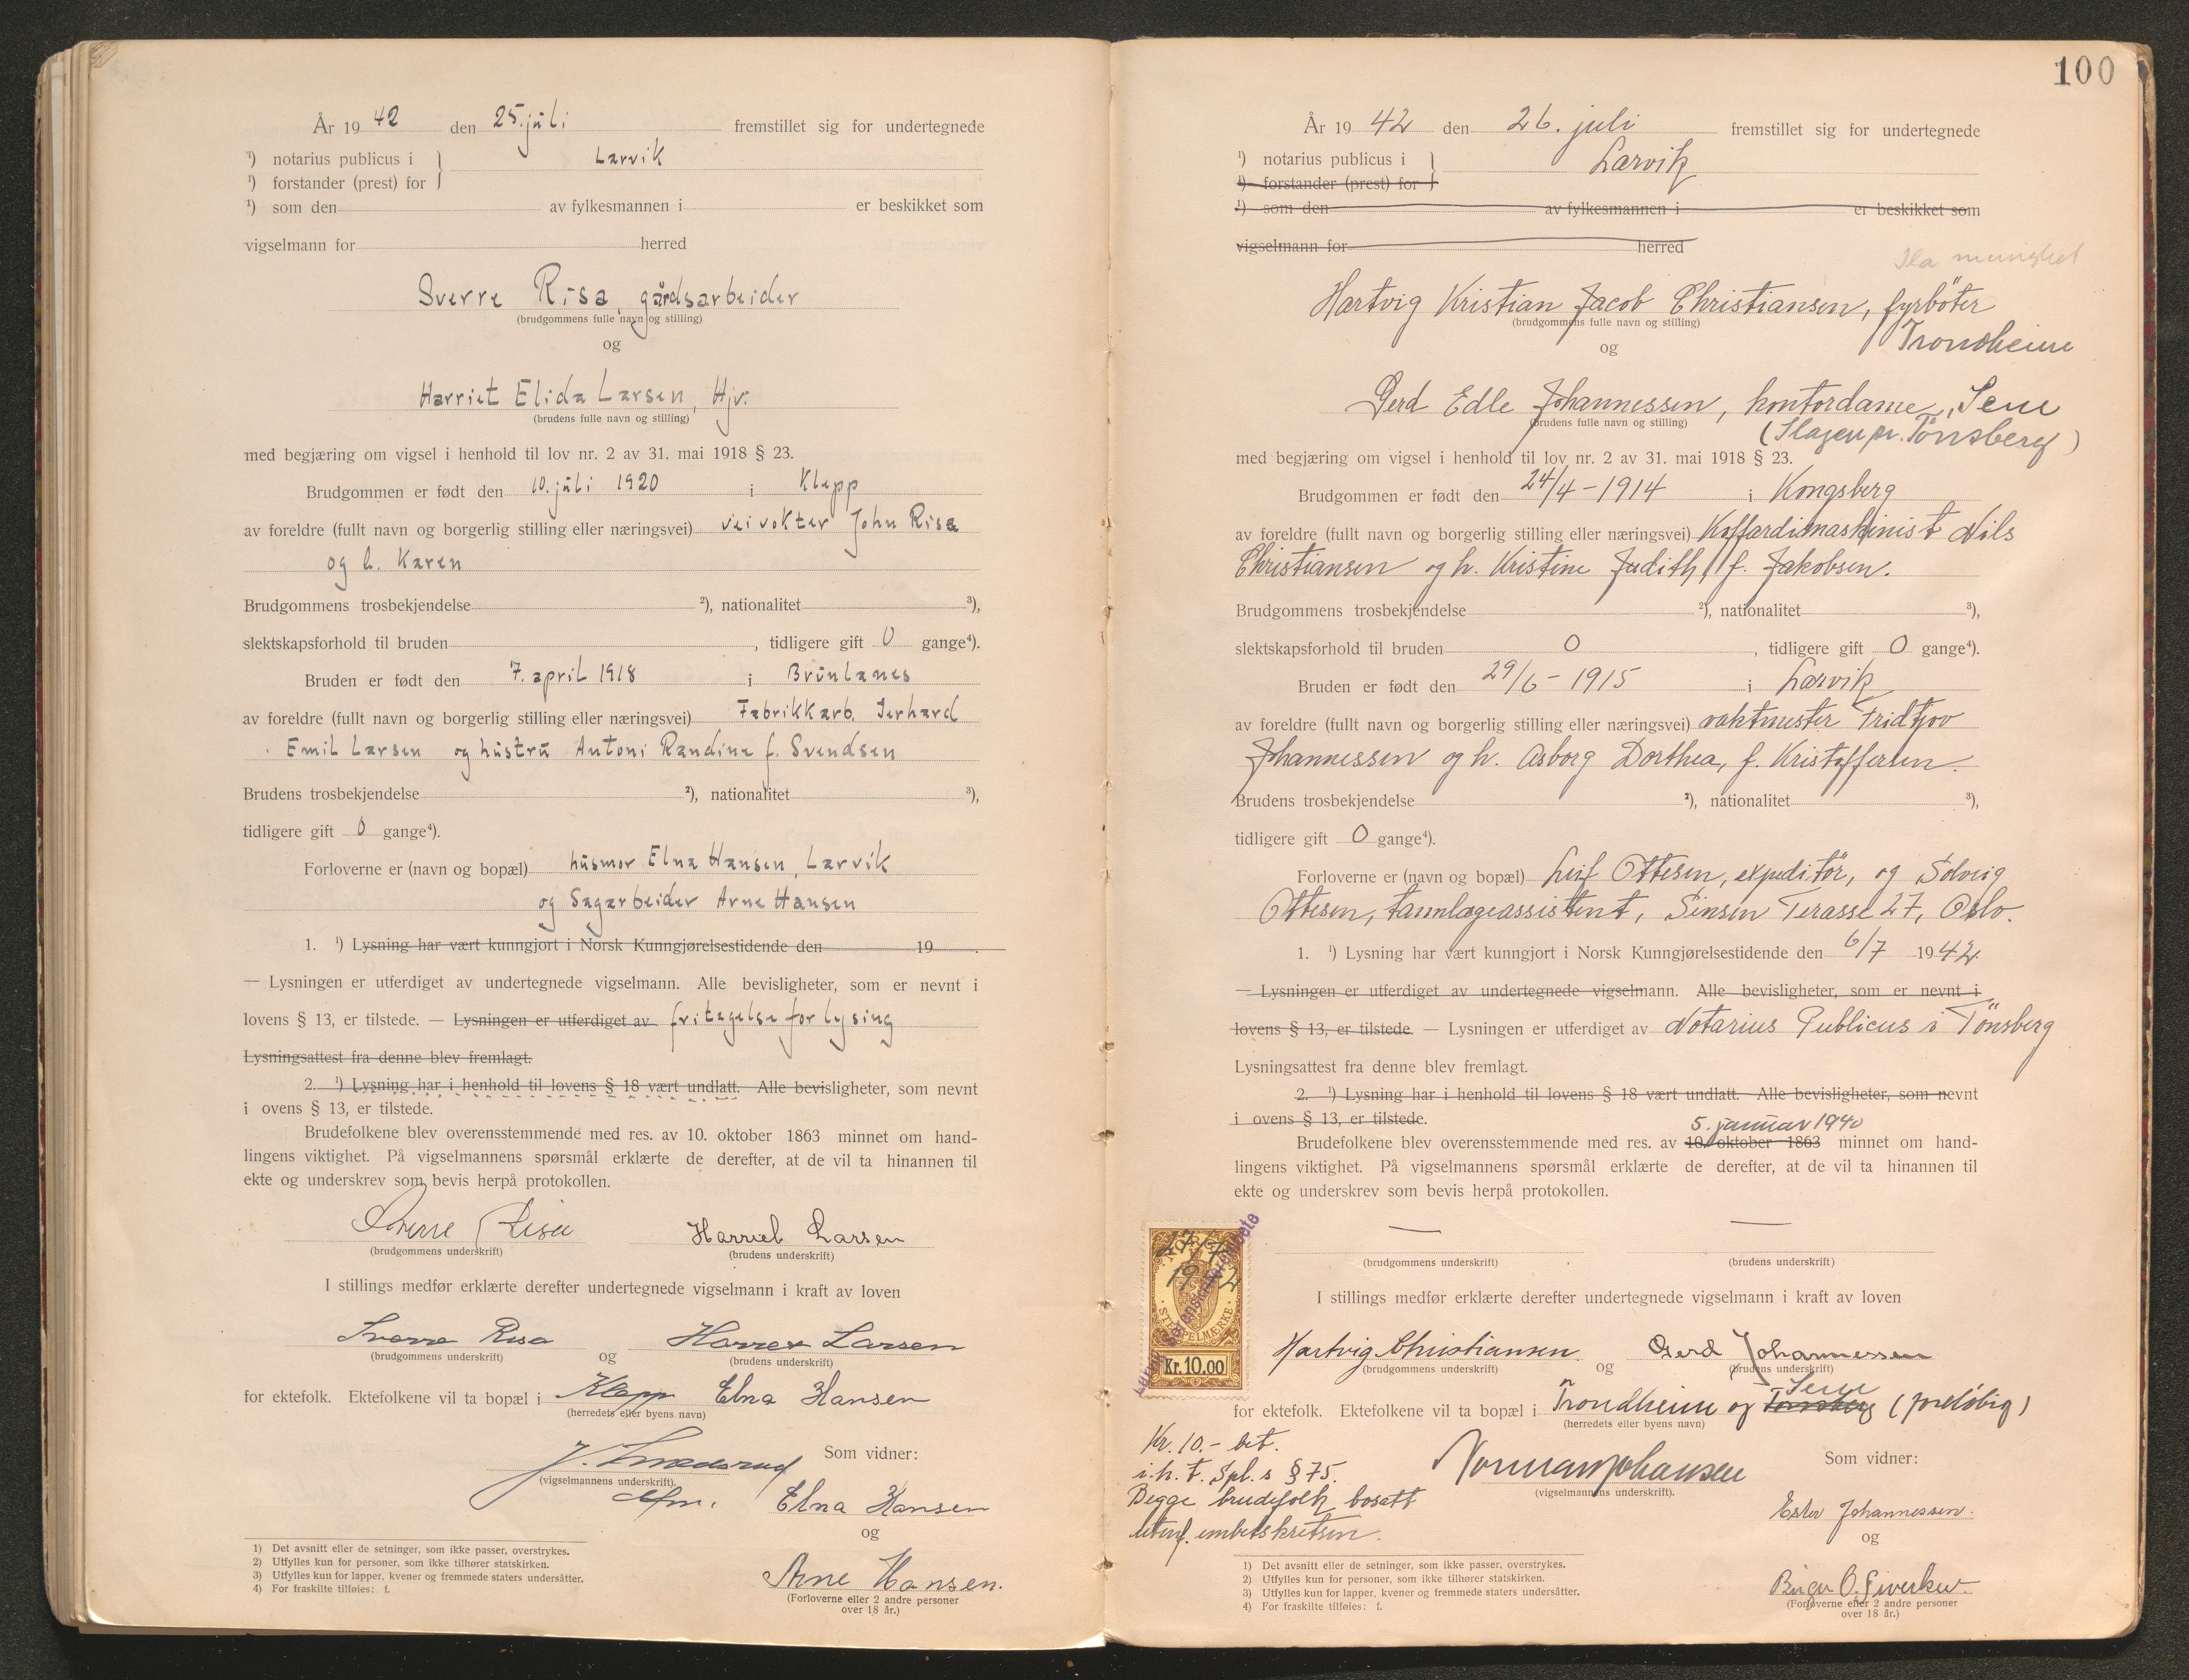 År 19 42 den 25. juli fremstillet sig for undertegnede
¹) notarius publicus i } Larvik
¹) forstander (prest) for
¹) som den av fylkesmannen i er beskikket som
vigselmann for herred
Sverre Risa, gårdsarbeider
(brudgommens fulle navn og stilling)
og
Harriet Elida Larsen, Hjv.
(brudens fulle navn og stilling)
med begjæring om vigsel i henhold til lov nr. 2 av 31. mai 1918 § 23.
Brudgommen er født den 10. juli 1920 i Klepp
av foreldre (fullt navn og borgerlig stilling eller næringsvei) veivokter John Risa
og h. Karen
Brudgommens trosbekjendelse ²), nationalitet ³),
slektskapsforhold til bruden , tidligere gift 0 gange⁴).
Bruden er født den 7. april 1918 i Brunlanes
av foreldre (fullt navn og borgerlig stilling eller næringsvei) Fabrikkarb. Gerhard
Emil Larsen og hustru Antoni Randine f. Svendsen
Brudens trosbekjendelse ²), nationalitet ³),
tidligere gift 0 gange⁴).
Forloverne er (navn og bopæl) husmor Elna Hansen, Larvik
og Sagarbeider Arne Hansen
1. ¹) Lysning har vært kunngjort i Norsk Kunngjørelsestidende den 19 .
— Lysningen er utferdiget av undertegnede vigselmann. Alle bevisligheter, som er nevnt i
lovens § 13, er tilstede. — Lysningen er utferdiget av fritagelse for lysing
Lysningsattest fra denne blev fremlagt.
2. ¹) Lysning har i henhold til lovens § 18 vært undlatt. Alle bevisligheter, som nevnt
i ovens § 13, er tilstede.
Brudefolkene blev overensstemmende med res. av 10. oktober 1863 minnet om hand-
lingens viktighet. På vigselmannens spørsmål erklærte de derefter, at de vil ta hinannen til
ekte og underskrev som bevis herpå protokollen.
Sverre Risa Harriet Larsen
(brudgommens underskrift) (brudens underskrift)
I stillings medfør erklærte derefter undertegnede vigselmann i kraft av loven
Sverre Risa og Harriet Larsen
(brudgommens underskrift) (brudens underskrift)
for ektefolk. Ektefolkene vil ta bopæl i Klepp Elna Hansen
(herredets eller byens navn)
Som vidner:
(vigselmannens underskrift).
Elna Hansen
og
Arne Hansen.
(Forloverne eller 2 andre personer
over 18 år.)
1) Det avsnitt eller de setninger, som ikke passer, overstrykes.
2) Utfylles kun for personer, som ikke tilhører statskirken.
3) Utfylles kun for lapper, kvener og fremmede staters undersåtter.
4) For fraskilte tilføies: f.
100
År 19 42 den 26. juli fremstillet sig for undertegnede
¹) notarius publicus i } Larvik
¹) forstander (prest) for
¹) som den av fylkesmannen i er beskikket som
vigselmann for herred
Ila menighet
Hartvig Kristian Jacob Christiansen, fyrbøter
(brudgommens fulle navn og stilling)
Trondheim
og
Gerd Edle Johannessen, kontordame, Sem
(brudens fulle navn og stilling)
(Slagen pr. Tönsberg)
med begjæring om vigsel i henhold til lov nr. 2 av 31. mai 1918 § 23.
Brudgommen er født den 24/4 - 1914 i Kongsberg
av foreldre (fullt navn og borgerlig stilling eller næringsvei) Koffardimaskinist Nils
Christiansen og h. Kristine Judith, f. Jakobsen.
Brudgommens trosbekjendelse ²), nationalitet ³),
slektskapsforhold til bruden 0 , tidligere gift 0 gange⁴).
Bruden er født den 29/6 - 1915 i Larvik
av foreldre (fullt navn og borgerlig stilling eller næringsvei) vaktmester Fridtjov
Johannessen og h. Asborg Dorthea, f. Kristoffersen.
Brudens trosbekjendelse ²), nationalitet ³),
tidligere gift 0 gange⁴).
Forloverne er (navn og bopæl) Leif Ottesen, expeditör, og Solveig
Ottesen, tannlægeassistent, Sinsen Terasse 27, Oslo.
1. ¹) Lysning har vært kunngjort i Norsk Kunngjørelsestidende den 6/7 19 42
— Lysningen er utferdiget av undertegnede vigselmann. Alle bevisligheter, som er nevnt i
lovens § 13, er tilstede. — Lysningen er utferdiget av Notarius Publicus i Tönsberg
Lysningsattest fra denne blev fremlagt.
2. ¹) Lysning har i henhold til lovens § 18 vært undlatt. Alle bevisligheter, som nevnt
i ovens § 13, er tilstede.
5. januar 1940
Brudefolkene blev overensstemmende med res. av 10. oktober 1863 minnet om hand-
lingens viktighet. På vigselmannens spørsmål erklærte de derefter, at de vil ta hinannen til
ekte og underskrev som bevis herpå protokollen.
— —
(brudgommens underskrift) (brudens underskrift)
NORGE
27/7 1942
STEMPELMERKE
Kr. 10.00
I stillings medfør erklærte derefter undertegnede vigselmann i kraft av loven
Hartvig Christiansen og Gerd Johannessen
(brudgommens underskrift) (brudens underskrift)
Sem
for ektefolk. Ektefolkene vil ta bopæl i Trondheim og Tønsberg (foreløbig)
(herredets eller byens navn)
Kr. 10.- bet.
i.h.t. Spl.s § 75.
Begge brudefolk bosatt
utenf. embetskretsen.
Norman Johansen
(vigselmannens underskrift).
Som vidner:
Ester Johannessen.
og
Birger O.
(Forloverne eller 2 andre personer
over 18 år.)
1) Det avsnitt eller de setninger, som ikke passer, overstrykes.
2) Utfylles kun for personer, som ikke tilhører statskirken.
3) Utfylles kun for lapper, kvener og fremmede staters undersåtter.
4) For fraskilte tilføies: f.